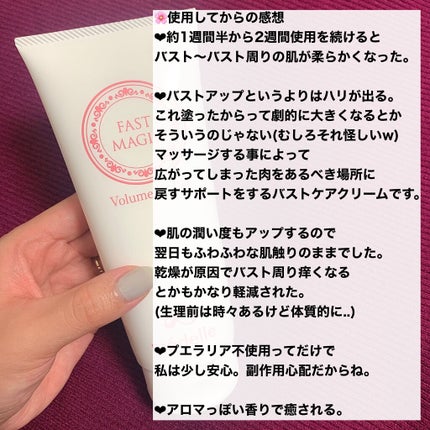 🌸使用してからの感想
❤約1週間半から2週間使用を続けると
バスト〜バスト周りの肌が柔らかくなった。
❤バストアップというよりはハリが出る。
これ塗ったからって劇的に大きくなるとか
そういうのじゃない(むしろそれ怪しいw)
マッサージする事によって
広がってしまった肉をあるべき場所に
戻すサポートをするバストケアクリームです。
❤肌の潤い度もアップするので
翌日もふわふわな肌触りのままでした。
乾燥が原因でバスト周り痒くなる
とかもかなり軽減された。
(生理前は時々あるけど体質的に..)
❤プエラリア不使用ってだけで
私は少し安心。副作用心配だからね。
❤アロマっぽい香りで癒される。
FAST
Volume